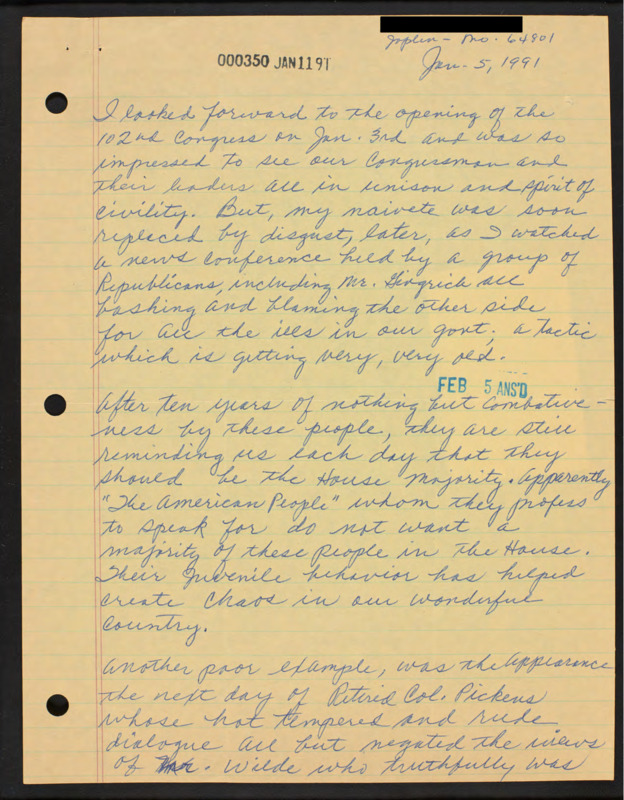 Joplin - Mo. 64801
000350 JAN 11 91
Jan. 5, 1991
I looked forward to the opening of the
102nd Congress on Jan. 3rd and was so
impressed to see our Congressman and
their leaders all in unison and spirit of
civility. But, my naivete was soon
replaced by disgust, later, as I watched
a news conference held by a group of
Republicans, including Mr. Gingrich all
bashing and blaming the other side
for all the ills in our govt; a tactic
which is getting very, very old.
FEB 5 ANS'D
After ten years of nothing but combative-
ness by these people, they are still
reminding us each day that they
should be the House majority. Apparently
"The American People" whom they profess
to speak for do not want a
majority of these people in the House.
Their Juvenile behavior has helped
create chaos in our wonderful
country.
Another poor example, was the appearance
the next day of Retired Col. Pickens
whose hot tempered and rude
dialogue all but negated the views
of Mr. Walde who truthfully was